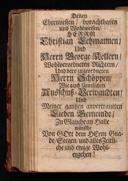 Denen
Ehrenvesten, Vorachtbaren
und Wohlweisen,
HERRN
Christian Lehmannen,
Und
Herrn George Kellern,
Wohlverordneten Richtern,
Und derer zugeordneten
Herrn Schöppen,
Wie auch sämtlichen
Ausschuß-Verwandten,
Und
Meiner gantzen anvertrauten
Lieben Gemeinde,
Zu
wünsche
Von GOtt dem HErrn Gnade,
Segen und alles Zeitliche
und ewige Wohlergehen!